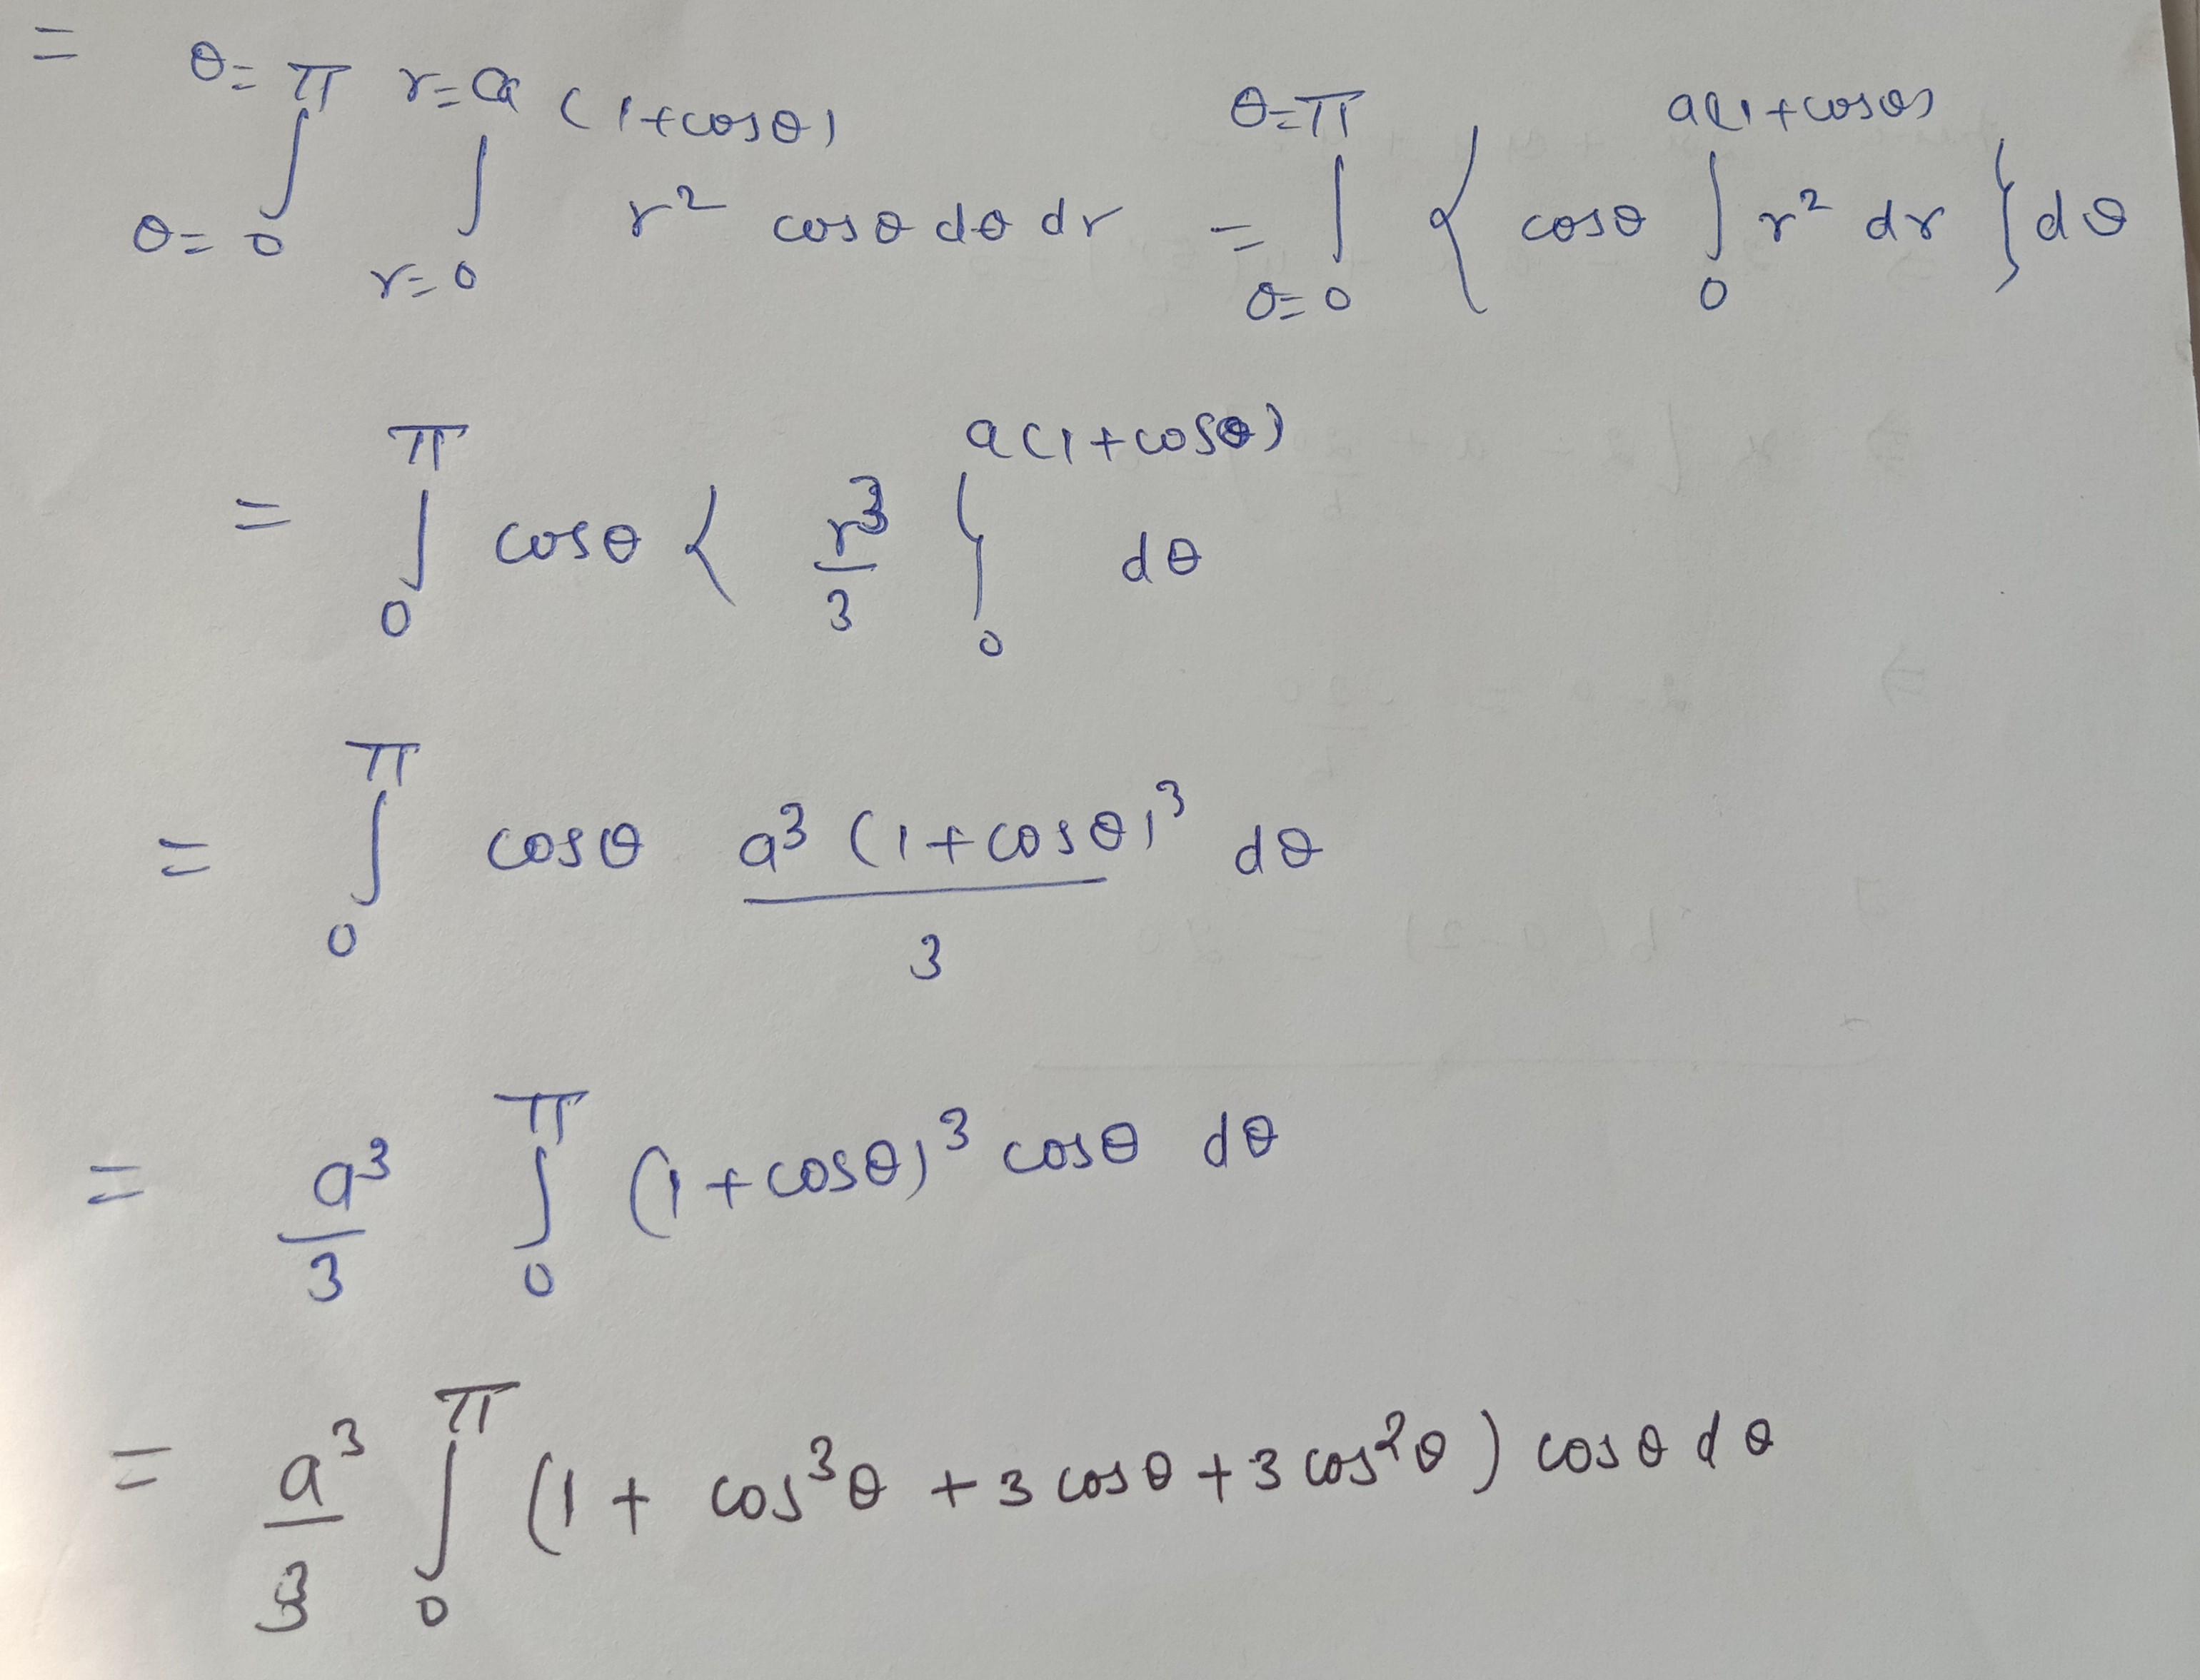 = ∫_{θ=0}^{θ=π} ∫_{r=0}^{r=a(1+cosθ)} r² cosθ dθ dr = ∫_{θ=0}^{θ=π} { cosθ ∫_0^{a(1+cosθ)} r² dr } dθ
= ∫_0^π cosθ { r³/3 }_0^{a(1+cosθ)} dθ
= ∫_0^π cosθ a³(1+cosθ)³/3 dθ
= a³/3 ∫_0^π (1+cosθ)³ cosθ dθ
= a³/3 ∫_0^π (1 + cos³θ + 3cosθ + 3cos²θ) cosθ dθ